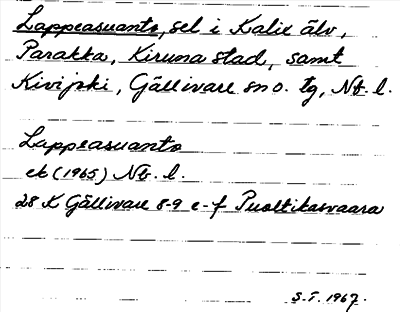 Lappeasuanto, sel i Kalix älv,
Parakka, Kiruna stad, samt
Kivijoki, Gällivare sn o. tg, Nb. l.
Lappeasuanto
ek (1965) Nb. l.
28 K Gällivare 8-9 e-f Puoltikasvaara
S.T. 1967.